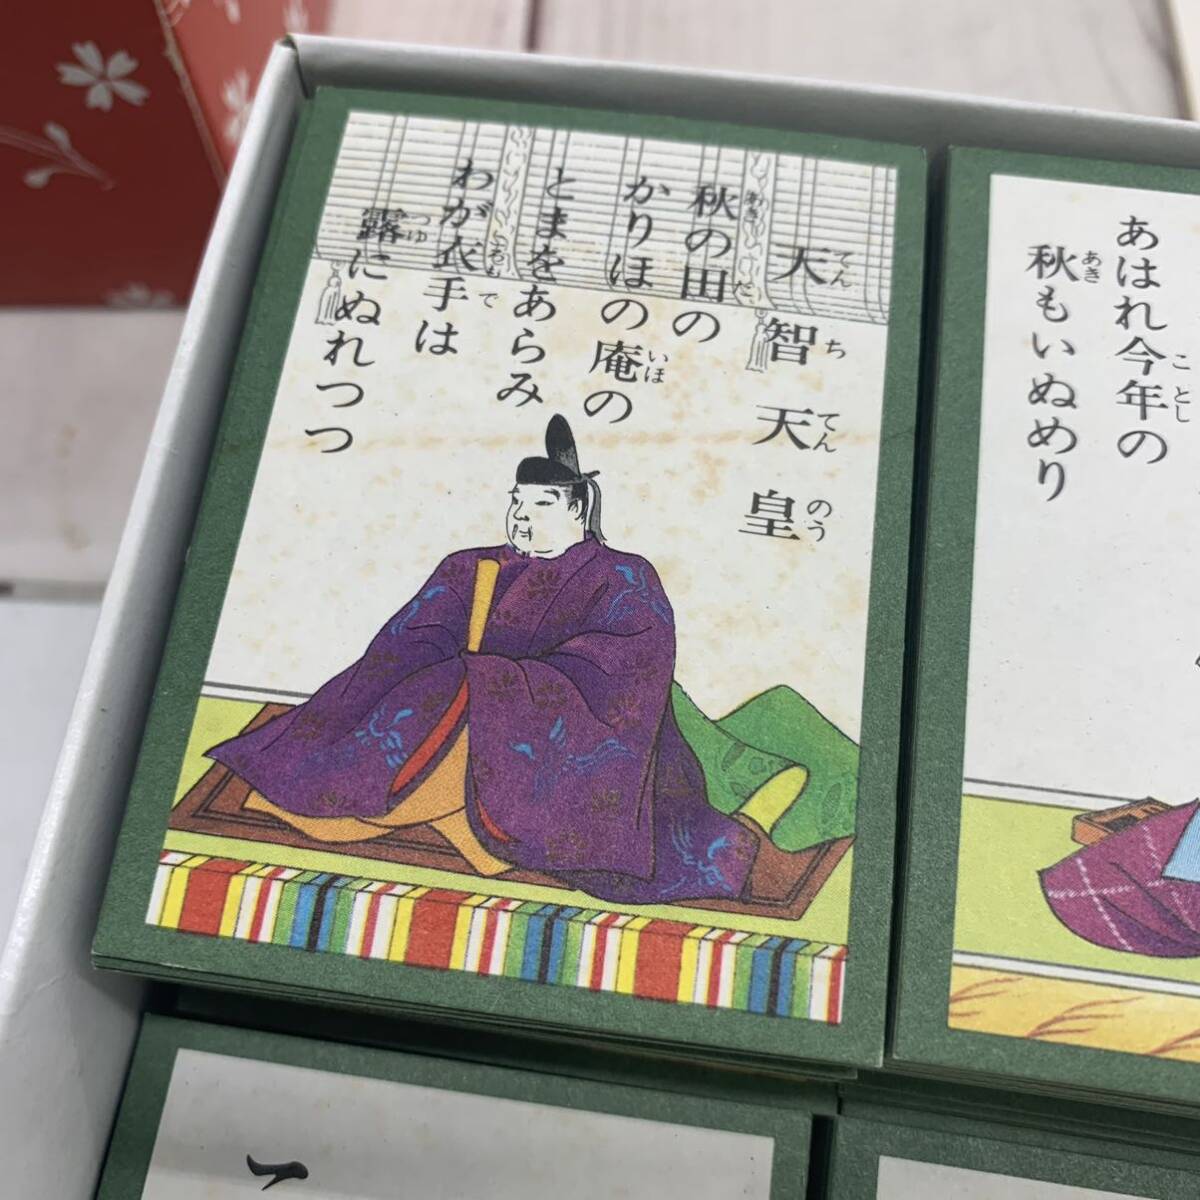 あはれ今年の
秋もいぬめり
天智天皇
秋の田の
かりほの庵の
とまをあらみ
わが衣手は
露にぬれつつ